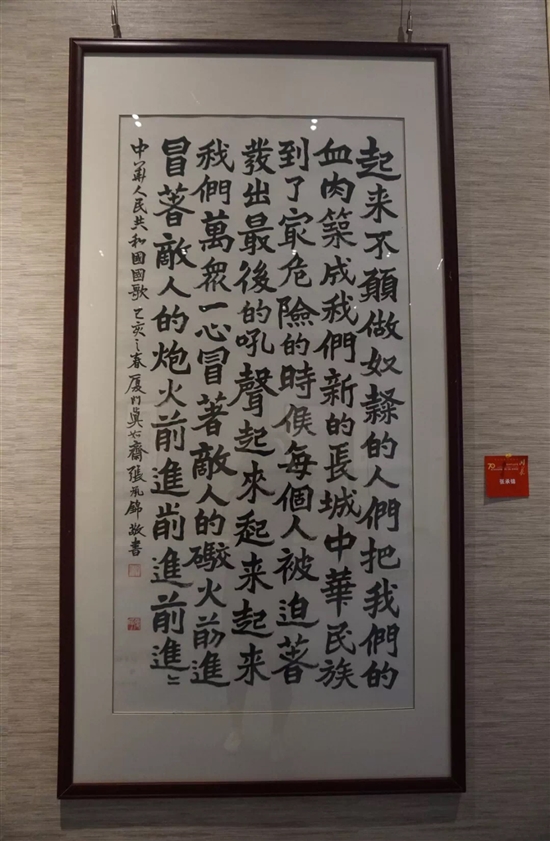 起来不願做奴隸的人們把我們的
血肉築成我們新的長城中華民族
到了最危險的時候每個人被迫著
發出最後的吼聲起來起來起來
我們萬衆一心冒著敵人的礮火前進
冒著敵人的炮火前進前進前進
中華人民共和國國歌 己亥之春 厦門 齋張 錦敬書
70